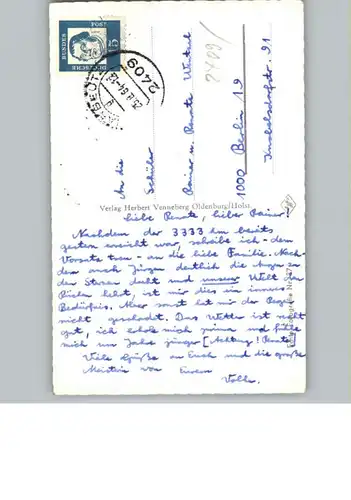 DEUTSCHE
BUNDESPOST
15
2409
2409
An die
Schüler
Rainer u. Renate
1000 Berlin 19
Knobelsdorfstr. 91
Verlag Herbert Venneberg Oldenburg/Holst.
liebe Renate, lieber Rainer!
Nachdem der 3333 km bereits
gestern erreicht war, schreibe ich - dem
Vorsatz treu - an die liebe Familie. Nach-
dem auch Jürgen deutlich die Augen zu
den Sternen dreht und unserer Welt den
Rücken kehrt, ist mir dies ein inneres
Bedürfnis. Aber sonst hat mir der Regen
nicht geschadet. Das Wetter ist recht
gut, ich erhole mich prima und fühle
mich um Jahre jünger [Achtung! Renate]
Viele Grüße an Euch und die große
von Eurem